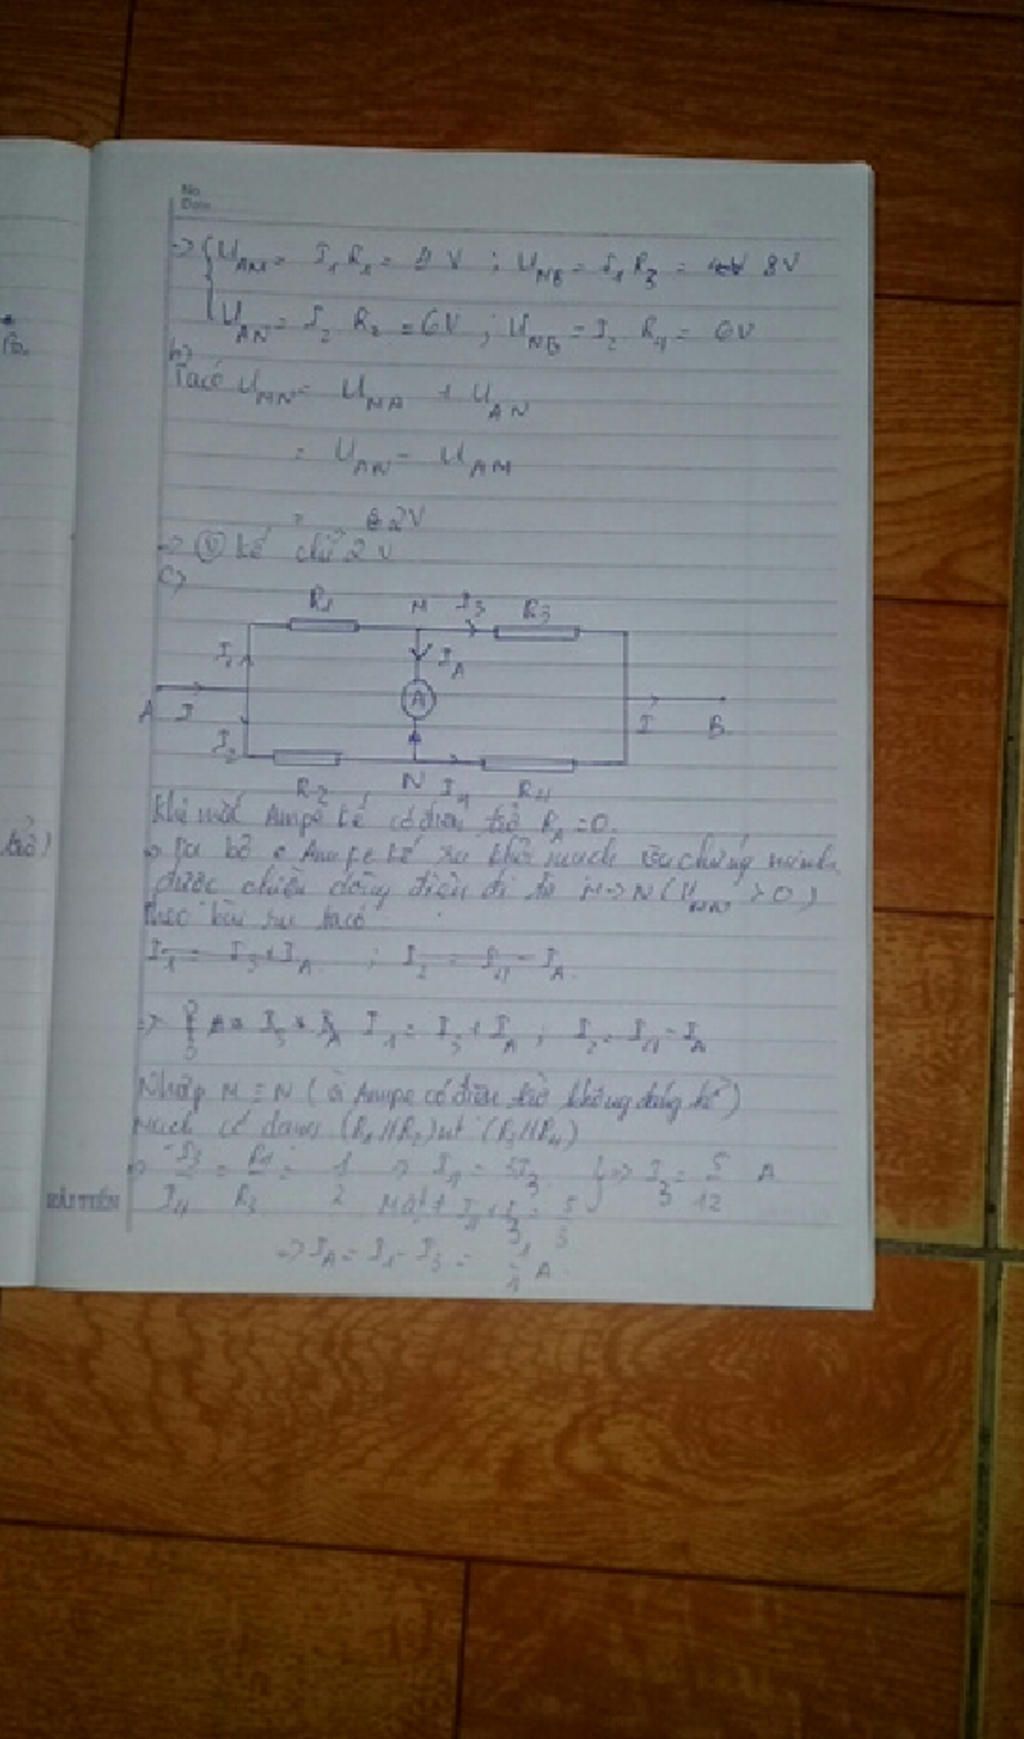 No.
Date
=> { U_AM = I_1 R_1 = 4 V ; U_MB = I_1 R_3 = 8V
U_AN = I_2 R_2 = 6V ; U_NB = I_2 R_4 = 6V
b)
Ta có U_MN = U_MA + U_AN
= U_AN - U_AM
= 2V
=> (V) kế chỉ 2 V
c)
R1 M I3 R3
I1 IA
A
A I I B
I2
R2 N I4 R4
Khi mắc Ampe kế có điện trở R_A = 0.
Ta bỏ Ampe kế ra khỏi mạch chứng minh
được chiều dòng điện đi từ M -> N (U_MN > 0)
Theo bài ra ta có
I_1 = I_3 + I_A ; I_2 = I_4 - I_A
=> I_1 = I_3 + I_A ; I_2 = I_4 - I_A
Nhập M ≡ N ( Ampe có điện trở không đáng kể )
Mạch có dạng (R_1 // R_2) nt (R_3 // R_4)
I_3 / I_4 = R_4 / R_3 = 1 / 2 => I_4 = I_3 } => I_3 = 5 / 12 A
Mặt ≠ I_4 + I_3 = 5 / 3
=> I_A = I_1 - I_3 = A
HẢI TIẾN
trở)